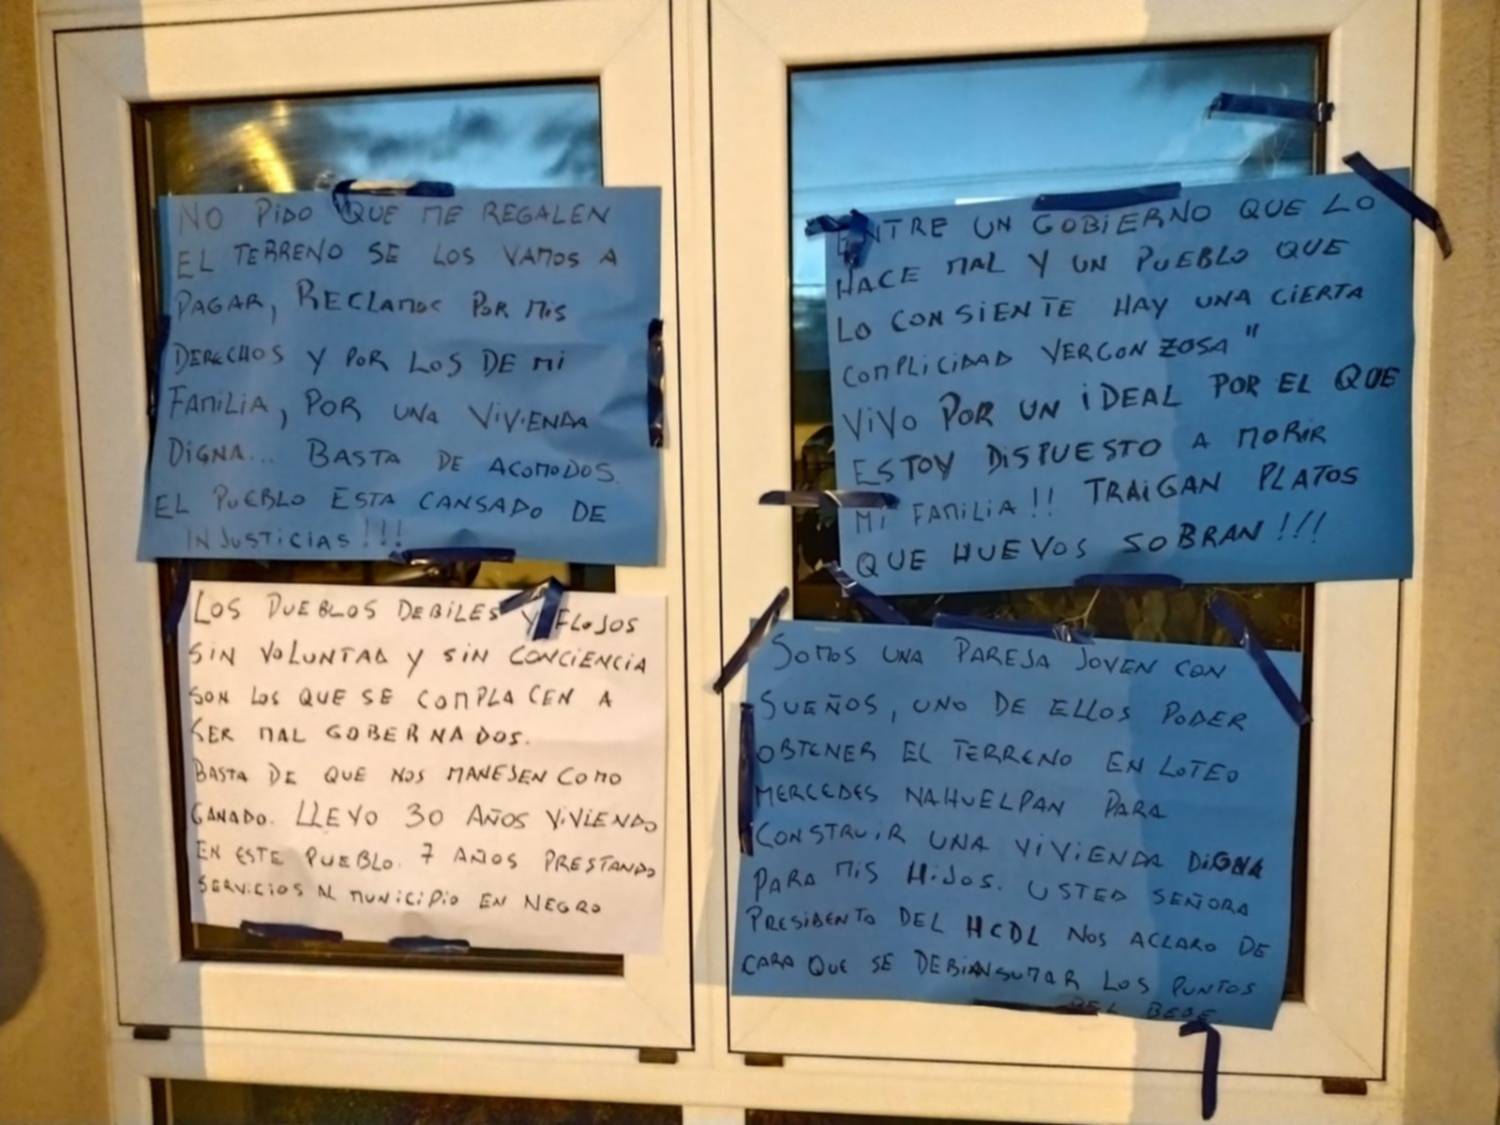 NO PIDO QUE ME REGALEN
EL TERRENO SE LOS VAMOS A
PAGAR, RECLAMOS POR MIS
DERECHOS Y POR LOS DE MI
FAMILIA, POR UNA VIVIENDA
DIGNA... BASTA DE ACOMODOS.
EL PUEBLO ESTA CANSADO DE
INJUSTICIAS!!!
LOS PUEBLOS DEBILES Y FLOJOS
SIN VOLUNTAD Y SIN CONCIENCIA
SON LOS QUE SE COMPLACEN A
SER MAL GOBERNADOS.
BASTA DE QUE NOS MANEJEN COMO
GANADO. LLEVO 30 AÑOS VIVIENDO
EN ESTE PUEBLO. 7 AÑOS PRESTANDO
SERVICIOS AL MUNICIPIO EN NEGRO
ENTRE UN GOBIERNO QUE LO
HACE MAL Y UN PUEBLO QUE
LO CONSIENTE HAY UNA CIERTA
COMPLICIDAD VERGONZOSA"
VIVO POR UN IDEAL POR EL QUE
ESTOY DISPUESTO A MORIR
MI FAMILIA!! TRAIGAN PLATOS
QUE HUEVOS SOBRAN!!!
SOMOS UNA PAREJA JOVEN CON
SUEÑOS, UNO DE ELLOS PODER
OBTENER EL TERRENO EN LOTEO
MERCEDES NAHUELPAN PARA
CONSTRUIR UNA VIVIENDA DIGNA
PARA MIS HIJOS. USTED SEÑORA
PRESIDENTA DEL HCDL NOS ACLARO DE
CARA QUE SE DEBIAN SUMAR LOS PUNTOS
DEL BEBE